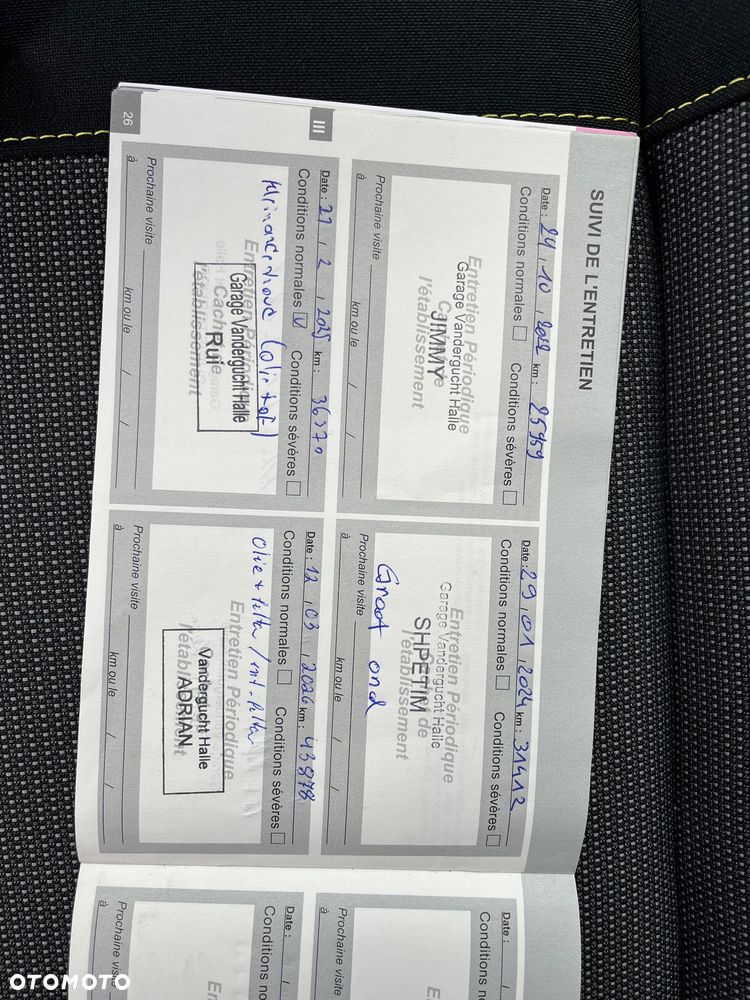 SUIVI DE L'ENTRETIEN
Date : 24 , 10 , 2022 km : 25959
Conditions normales Conditions sévères
Entretien Périodique
Garage Vandergucht Halle
JIMMY
l'établissement
Prochaine visite
à km ou le / /
Date : 29 , 01 , 2024 km : 31412
Conditions normales Conditions sévères
Entretien Périodique
Garage Vandergucht Halle
SHPETIM
l'établissement
Groot ond
Prochaine visite
à km ou le / /
III
Date : 21 , 2 , 2025 km : 36370
Conditions normales V Conditions sévères
Entretien Périodique
Garage Vandergucht Halle
Rui
l'établissement
Prochaine visite
à km ou le / /
26
Date : 12 , 03 , 2026 km : 43878
Conditions normales Conditions sévères
Olie + filter / int. filter
Entretien Périodique
Vandergucht Halle
ADRIAN
Prochaine visite
à km ou le / /
Date : /
Prochaine
à
Date : /
Prochaine
à
OTOMOTO